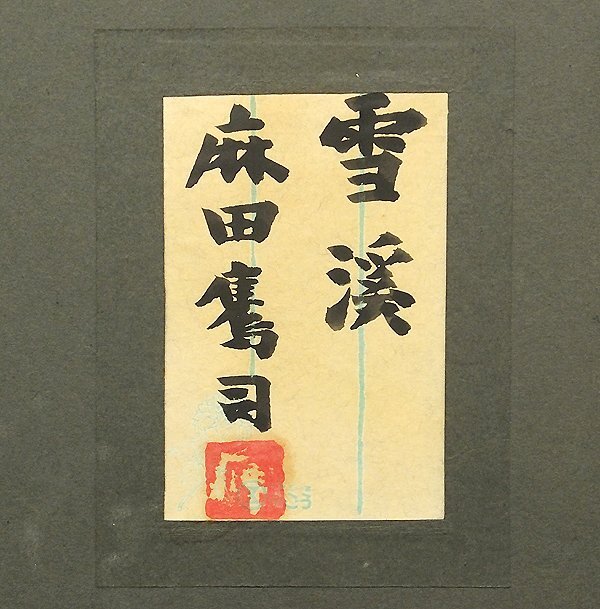 雪溪
麻田鷹司